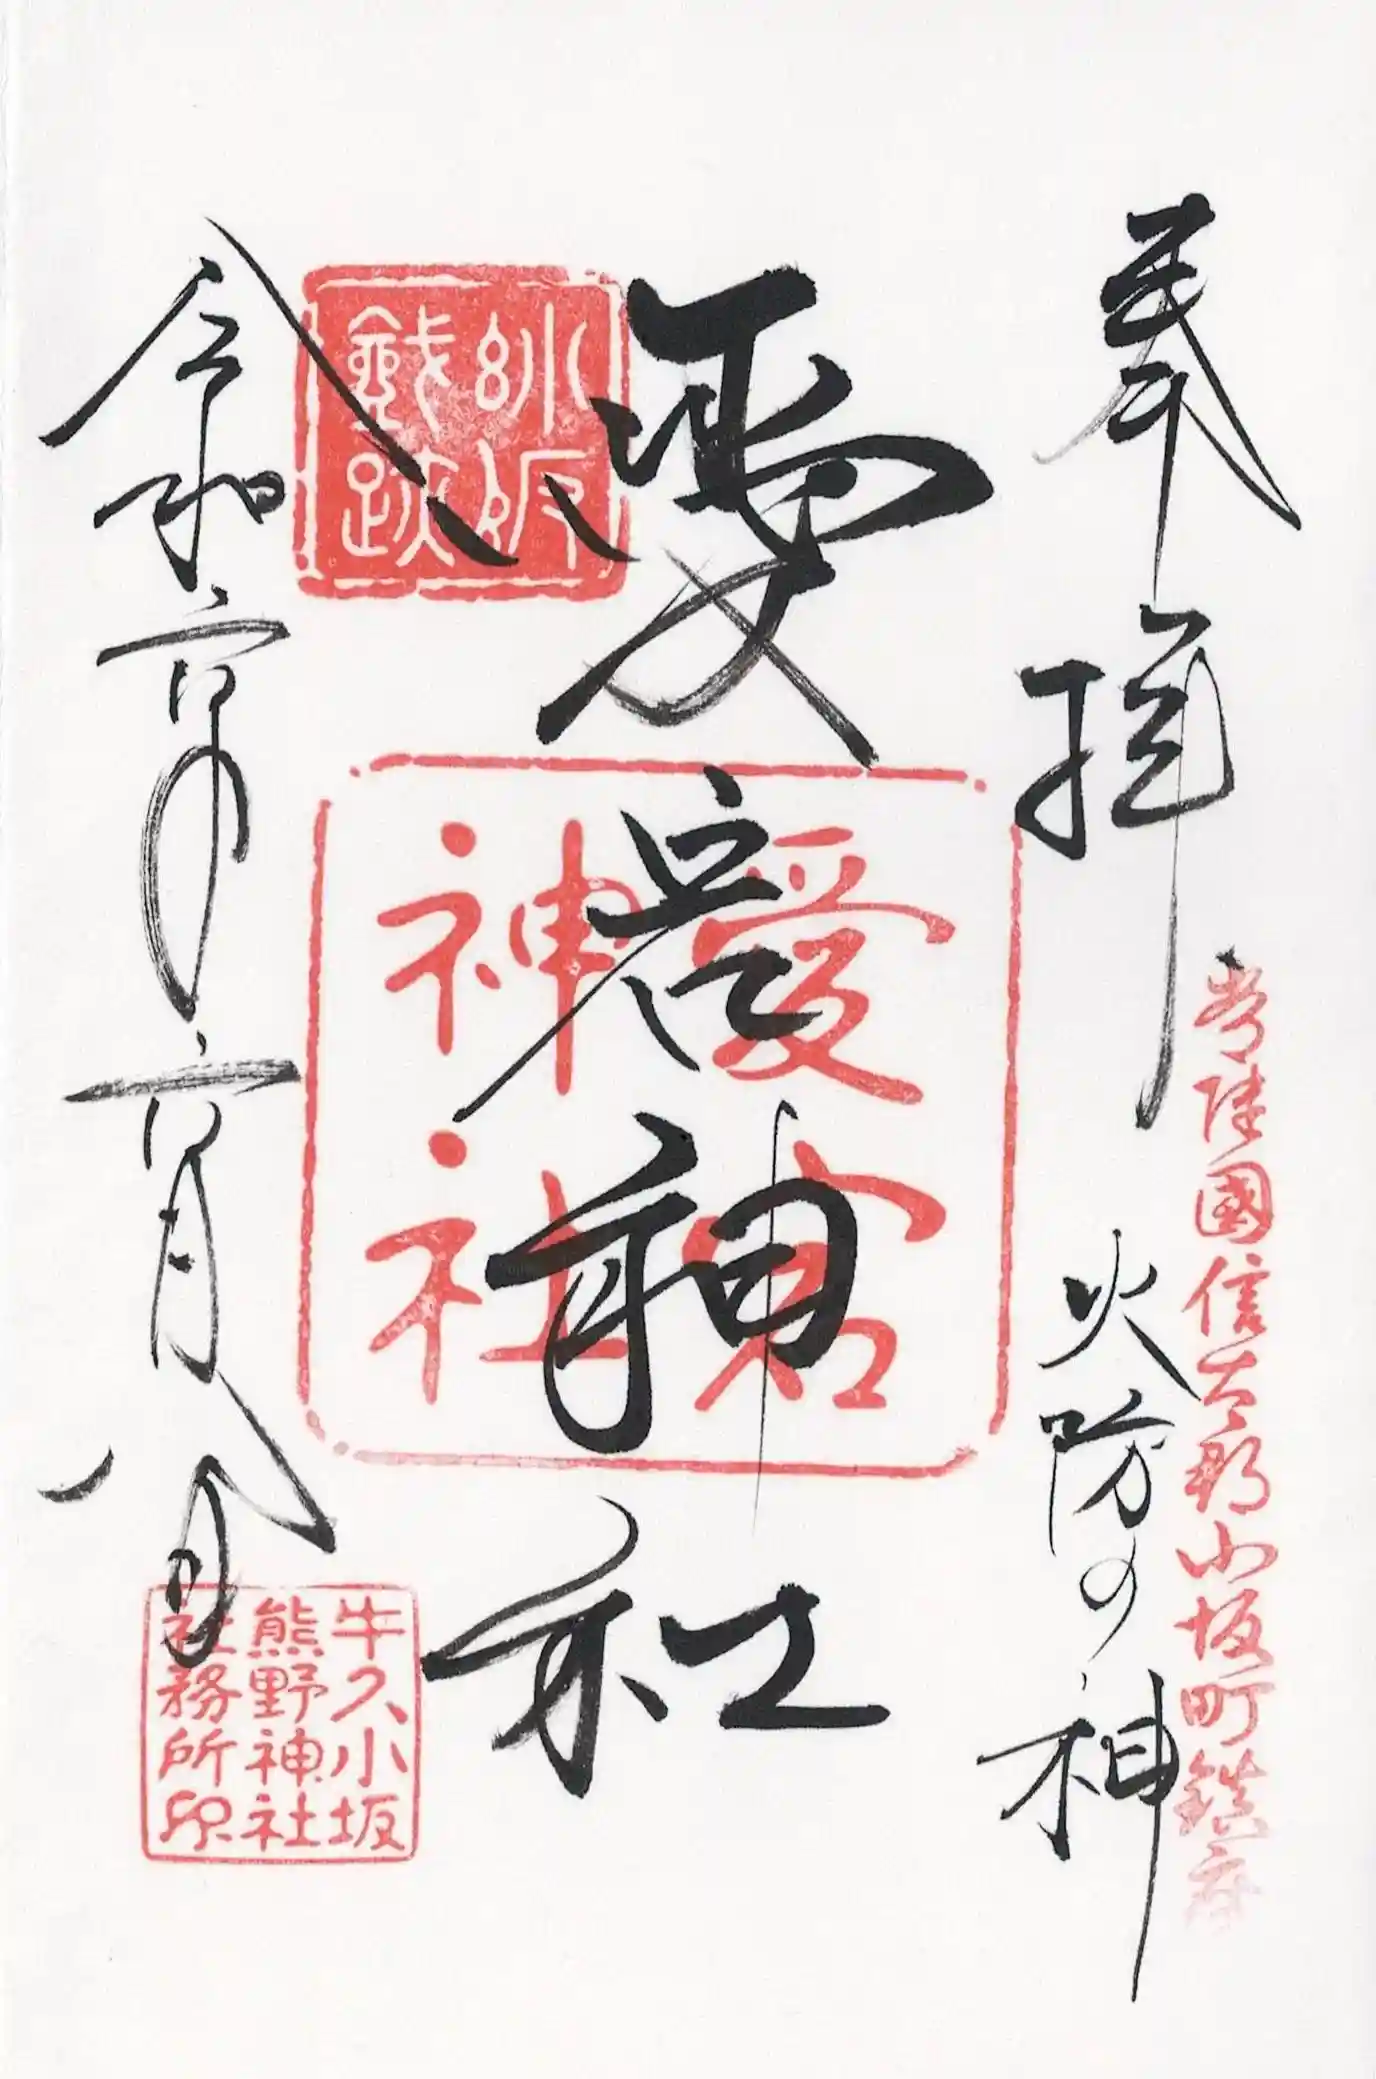 奉拝
常陸國信太郡小坂町鎮座
火防の神
愛宕神社
小坂
城跡
愛宕
神社
令和六年六月八日
牛久小坂
熊野神社
社務所印